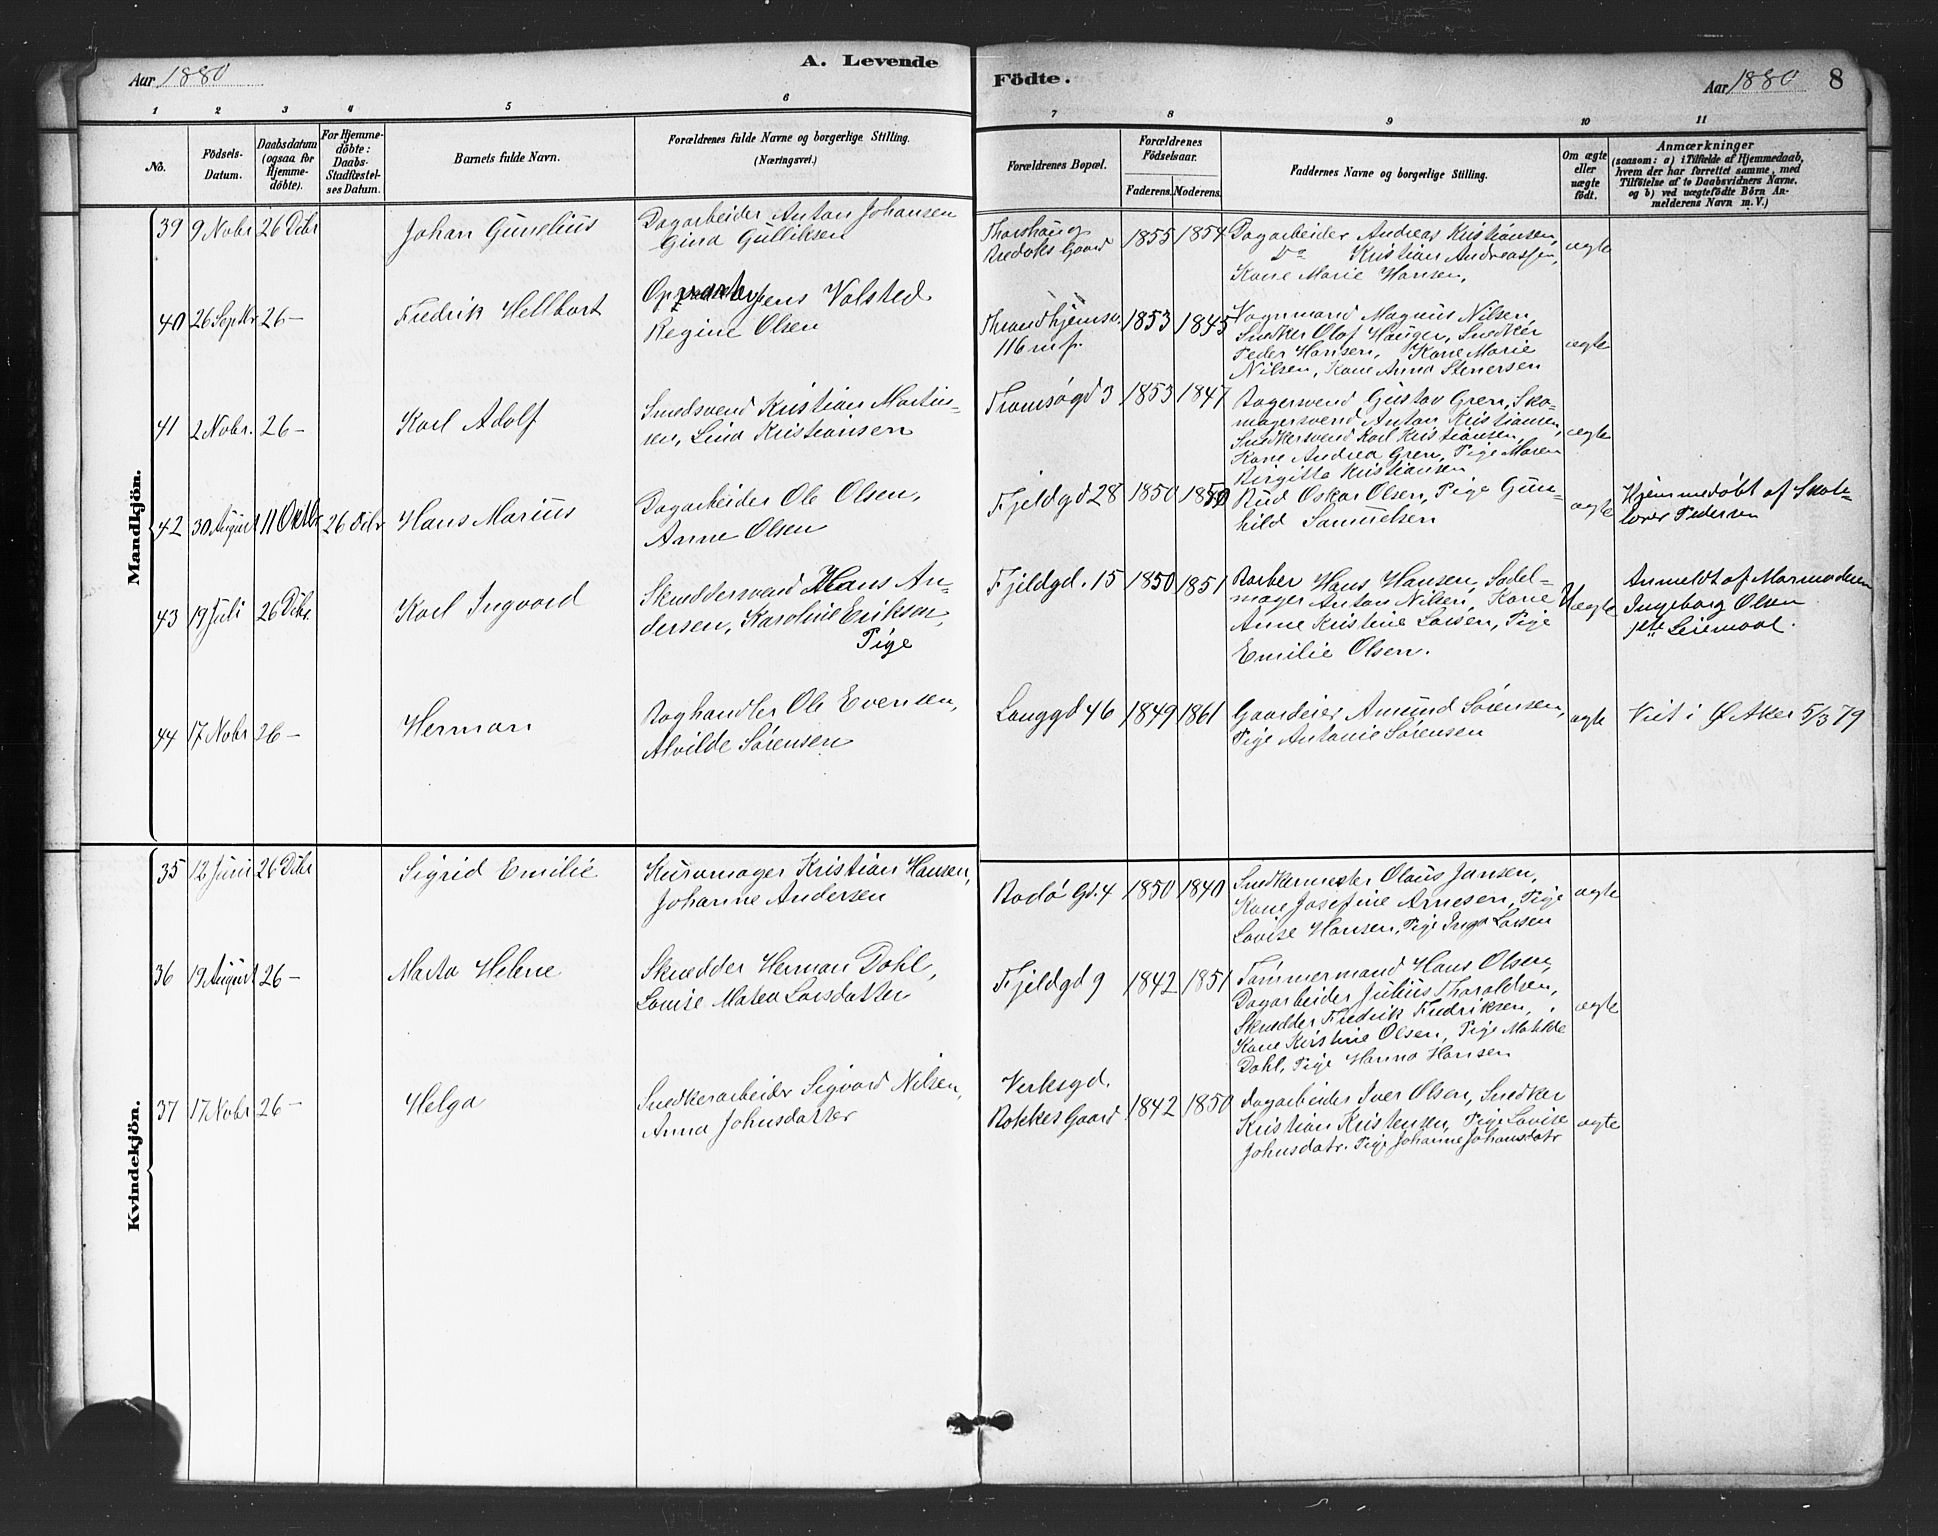 Aar 1880
A. Levende
Födte.
Aar 1880
8
1 2 3 4 5 6 7 8 9 10 11
No.
Födsels-
Datum.
Daabsdatum
(ogsaa for
Hjemme-
döbte).
For Hjemme-
döbte:
Daabs-
Stadfæstel-
ses Datum.
Barnets fulde Navn.
Forældrenes fulde Navne og borgerlige Stilling.
(Næringsvei.)
Forældrenes Bopæl.
Forældrenes
Födselsaar.
Faderens. Moderens.
Faddernes Navne og borgerlige Stilling.
Om ægte
eller
uægte
födt.
Anmærkninger
(saasom: a) i Tilfælde af Hjemmedaab,
hvem der har forrettet samme, med
Tilföielse af to Daabsvidners Navne,
og b) ved uægtefödte Börn An-
melderens Navn m. V.)
Mandkjön.
39 9 Nobr 26 Dibr
Johan Gunelius
Dagarbeider Anton Johansen
Gina Gulliksen
Thorshaug
Bredoks Gaard
1855 1854
Dagarbeider Andreas Kristiansen,
Do Kristian Andreassen,
Kone Marie Hansen,
ægte
40 26 Septbr 26 –
Fredrik Hellbart
Jens Volsted
Regine Olsen
Throndhjemsv.
116 m.f.
1853 1845
Vognmand Magnus Nilsen,
Snedker Olaf Hauger, Snedker
Peder Hansen, Kone Marie
Nilsen, Kone Anna Stenersen
ægte
41 2 Nobr. 26 –
Karl Adolf
Smedsvend Kristian Martin-
sen, Lina Kristiansen
Tromsøgd 3
1853 1847
Bagersvend Gustav Gren, Sko-
magersvend Anton Kristiansen,
Snedkersvend Karl Kristiansen,
Kone Andrea Gren, Pige Maren
Birgitte Kristiansen
ægte
42 30 August 11 Oktbr 26 Dibr
Hans Marius
Dagarbeider Ole Olsen,
Anne Olsen
Fjeldgd 28
1850
Bud Oskar Olsen, Pige Gun-
hild Samuelsen
ægte
Hjemmedøbt af Skole-
lærer Pedersen
43 19 Juli 26 Dibr.
Karl Ingvard
Skræddersvend Hans An-
dersen, Karoline Eriksen,
Pige
Fjeldgd. 15
1850 1851
Barber Hans Hansen, Sadel-
mager Anton Nilsen, Kone
Anne Kristine Larsen, Pige
Emilie Olsen.
Uægte
Anmeldt af Mormoderen
Ingeborg Olsen
1ste Leiemaal.
44 17 Nobr 26 –
Herman
Boghandler Ole Evensen,
Alvilde Sørensen
Langgd 46
1849 1861
Gaardeier Amund Sørensen,
Pige Antonie Sørensen
ægte
Viet i Ø Aker 5/3 79
Kvindekjön.
35 12 Juni 26 Dibr
Sigrid Emilie
Kurvmager Kristian Hansen,
Johanne Andersen
Bodø Gd. 4
1850 1840
Snedkermester Olaus Jansen,
Kone Josefine Arnesen, Pige
Lovise Hansen, Pige Inga Larsen
ægte
36 19 August 26 –
Marta Helene
Skrædder Herman Dahl,
Lovise Matea Larsdatter
Fjeldgd 9
1842 1851
Tømmermand Hans Olsen,
Dagarbeider Julius Thoraldsen,
Skrædder Fredrik Fredriksen,
Kone Kristine Olsen, Pige Matilde
Dahl, Pige Hanna Hansen
ægte
37 17 Nobr 26 –
Helga
Snedkerarbeider Sigvard Nilsen,
Anna Johnsdatter
Verksgd.
Bakkes Gaard
1842 1850
Dagarbeider Iver Olsen, Snedker
Kristian Kristensen, Pige Lovise
Johnsdatr. Pige Johanne Johansdatr
ægte